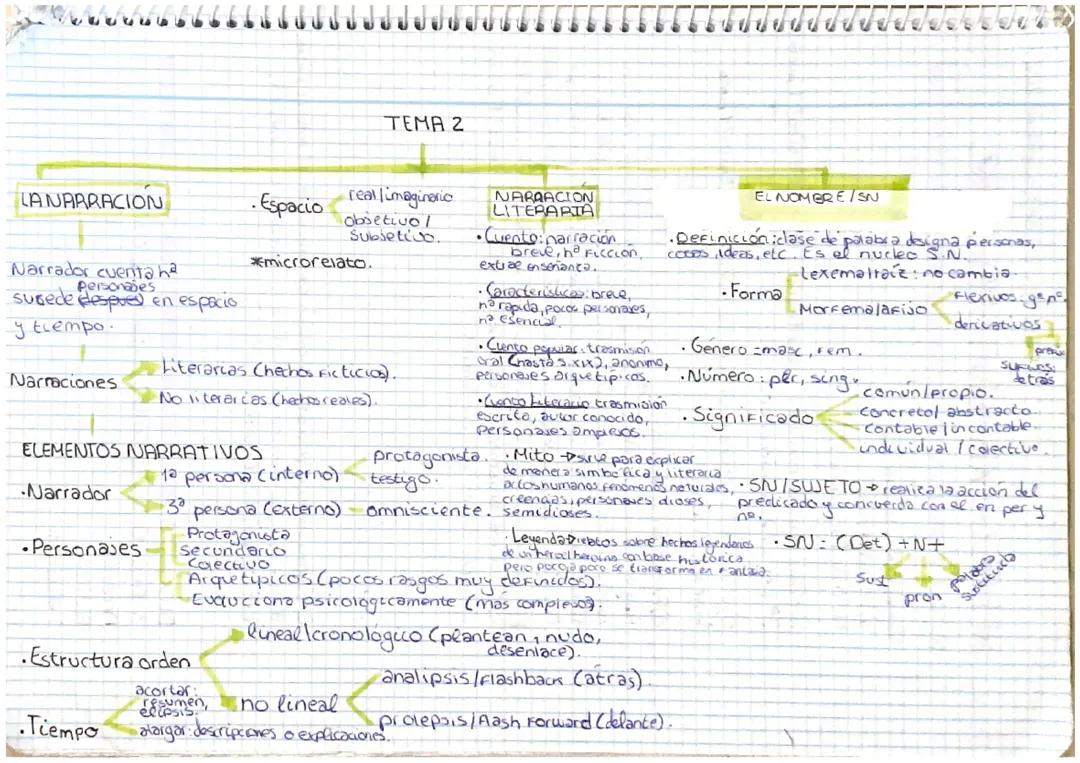 TEMA 2
LA NARRACIÓN
Narrador cuenta hª
personajes
sucede despues en espacio
y tiempo.
Narraciones
Literarias (hechos ficticios).
No literarias (hechos reales).
ELEMENTOS NARRATIVOS
·Narrador
1ª persona (interno)
protagonista.
testigo.
3ª persona (externo) - omnisciente.
·Personajes
Protagonista
secundario
Colectivo
Arquetípicos (pocos rasgos muy definidos).
Evoluciona psicológicamente (más complejos).
·Estructura orden
lineal/cronológico (plantean, nudo,
desenlace).
no lineal
analipsis/flashback (atrás).
prolepsis/flash forward (delante).
·Tiempo
acortar:
resumen,
elipsis.
alargar: descripciones o explicaciones.
·Espacio
real/imaginario
objetivo/
subjetivo.
*microrelato.
NARRACIÓN
LITERARIA
·Cuento: narración
breve, hª ficción,
extrae enseñanza.
·Características: breve,
nª rápida, pocos personajes,
nª esencial.
·Cuento popular: trasmisión
oral (hasta s. XIX), anónimo,
personajes arquetípicos.
·Cuento Literario trasmisión
escrita, autor conocido,
personajes complejos.
·Mito → sirve para explicar
de manera simbólica y literaria
actos humanos, fenómenos naturales,
creencias, personajes dioses,
semidioses.
·Leyenda → relatos sobre hechos legendarios
de un héroe/heroína con base histórica
pero poco a poco se transforma en fantasía.
EL NOMBRE/SN
·Definición: clase de palabra designa personas,
cosas, ideas, etc. Es el nucleo S.N.
·Forma
Lexema/raíz: no cambia
Morfema/afijo
Flexivos: gª nº.
derivativos
sufijos:
detrás
·Género = masc, fem.
·Número: plr, sing.
·Significado
común/propio.
concreto/abstracto
contable/incontable.
individual/colectivo.
·SN/SUJETO → realiza la acción del
predicado y concuerda con él en per y
nº.
·SN: (Det) + N +
Sust
pron
palabra
sustituida